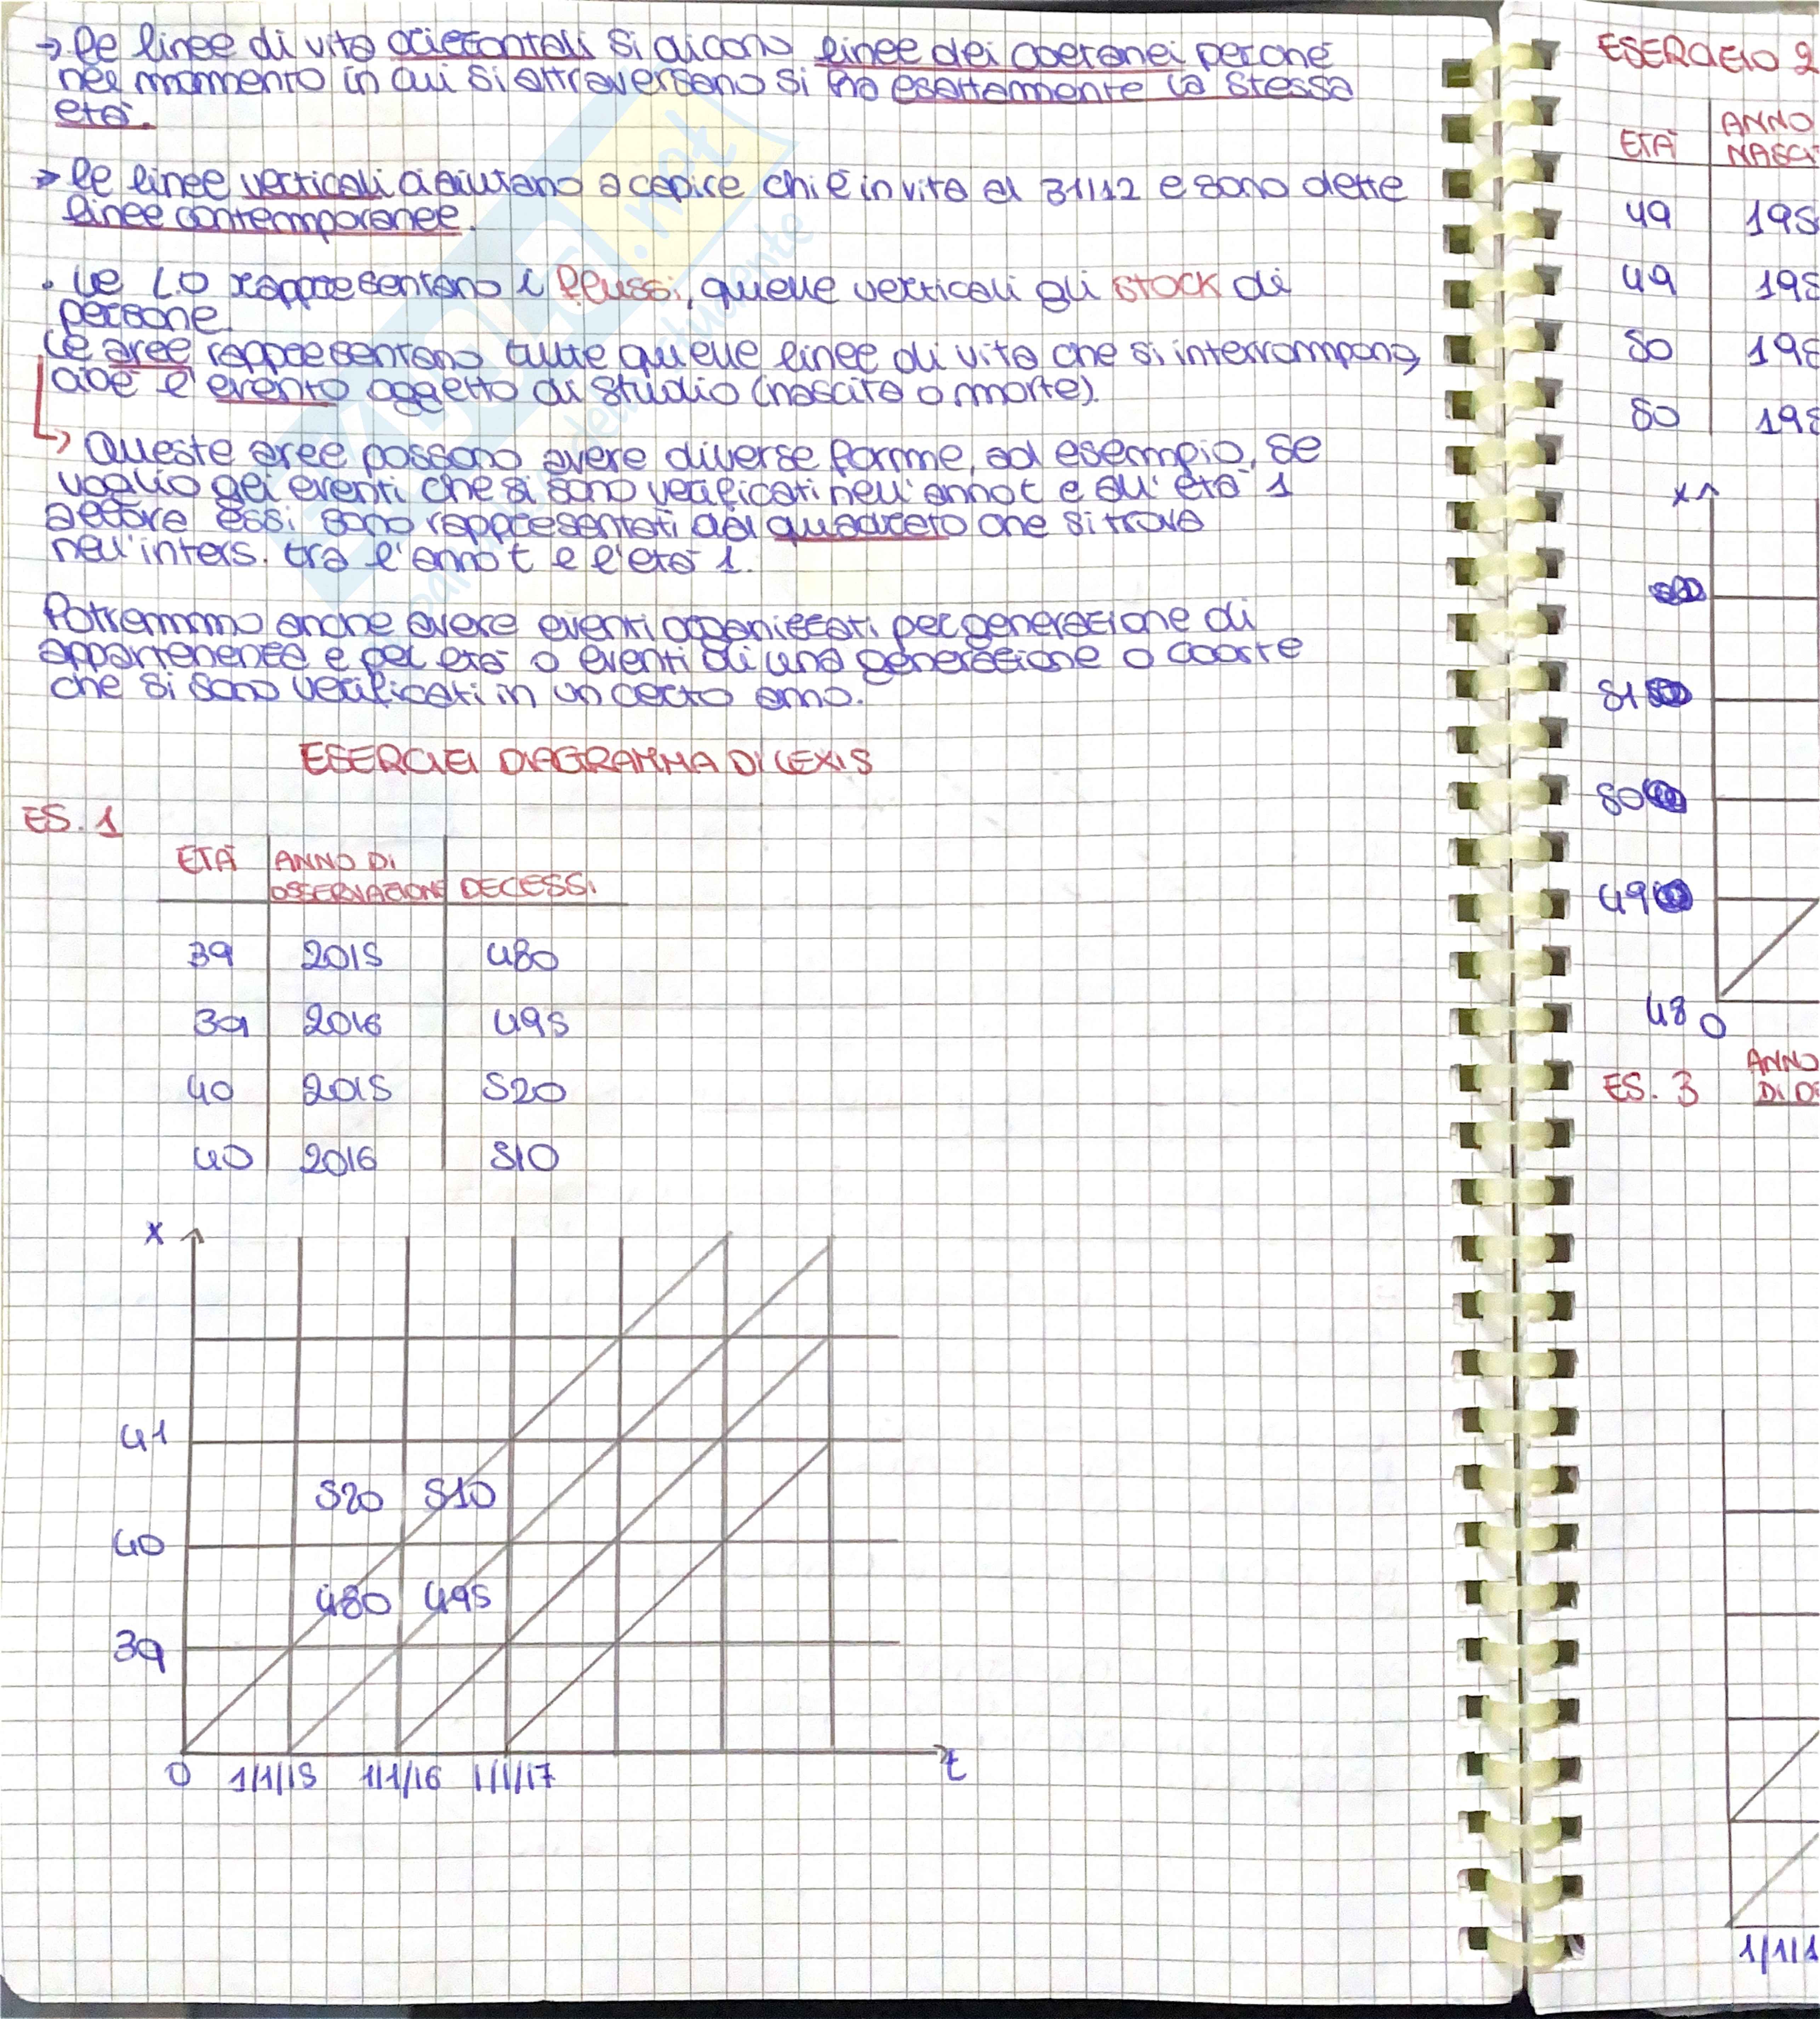 → Le linee di vita orizzontali si dicono linee dei coetanei perché
nel momento in cui si attraversano si ha esattamente la stessa
età.
→ Le linee verticali ci aiutano a capire chi è in vita al 31/12 e sono dette
linee contemporanee.
• Le LO rappresentano i flussi, quelle verticali gli stock di
persone.
Le aree rappresentano tutte quelle linee di vita che si interrompono,
cioè l'evento oggetto di studio (nascita o morte).
↳ Queste aree possono avere diverse forme, ad esempio, se
voglio gli eventi che si sono verificati nell'anno t e all'età 1
allora essi sono rappresentati dal quadrato che si trova
nell'inters. tra l'anno t e l'età 1.
Potremmo anche avere eventi organizzati per generazione di
appartenenza e per età o eventi di una generazione o coorte
che si sono verificati in un certo anno.
ESERCIZI DIAGRAMMA DI LEXIS
ES. 1
ETÀ ANNO DI OSSERVAZIONE DECESSI
39 2015 480
39 2016 495
40 2015 520
40 2016 510
x
41
520 510
40
480 495
39
0 1/1/15 1/1/16 1/1/17 t
ESERCIZIO 2
ETÀ ANNO
NASCI
49 195
49 195
50 195
50 195
x
51
50
49
48 0
ES. 3 ANNO
DI
1/1/1